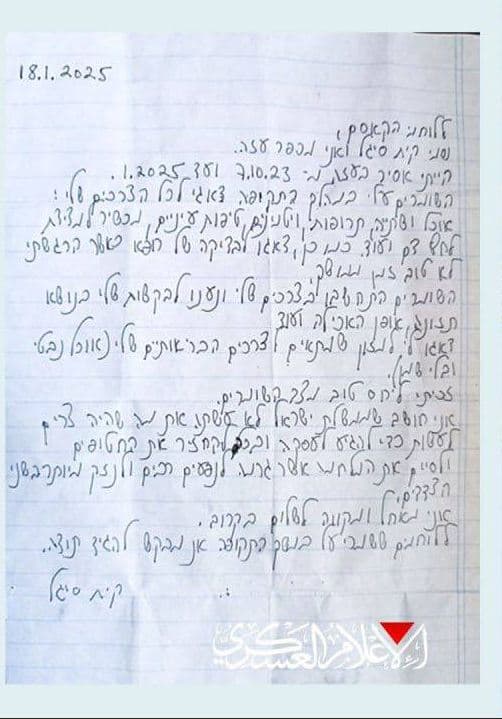 18.1.2025
ללוחמי הקסאם,
שמי קית סיגל ואני מכפר עזה.
הייתי אסיר בעזה מ- 7.10.23 ועד 1.2025.
השומרים עלי במהלך התקופה דאגו לכל הצרכים שלי:
אוכל ושתייה, תרופות, ויטמינים, טיפות עיניים, מכשיר למדידת
לחץ דם ועוד. כמו כן, דאגו לבדיקה של רופא כאשר הרגשתי
לא טוב זמן ממושך.
השומרים התחשבו בצרכים שלי ונענו לבקשות שלי בנושא
תזונה, אופן האכילה ועוד
דאגו לי למזון שמתאים לצרכים הבריאותיים שלי (אוכל נבטי
ובלי שמן).
זכיתי ליחס טוב מצד השומרים.
אני חושב שממשלת ישראל לא עשתה את מה שהיה צריך
לעשות כדי להגיע לעסקה ובכך להחזיר את החטופים
ולסיים את המלחמה אשר גרמה לנפגעים רבים ולנזק מיותר בשני
הצדדים.
אני מאחל ומקווה לשלום בקרוב.
ללוחמים ששמרו עלי במשך התקופה אני מבקש להגיד תודה.
קית סיגל
الإعلام العسكري